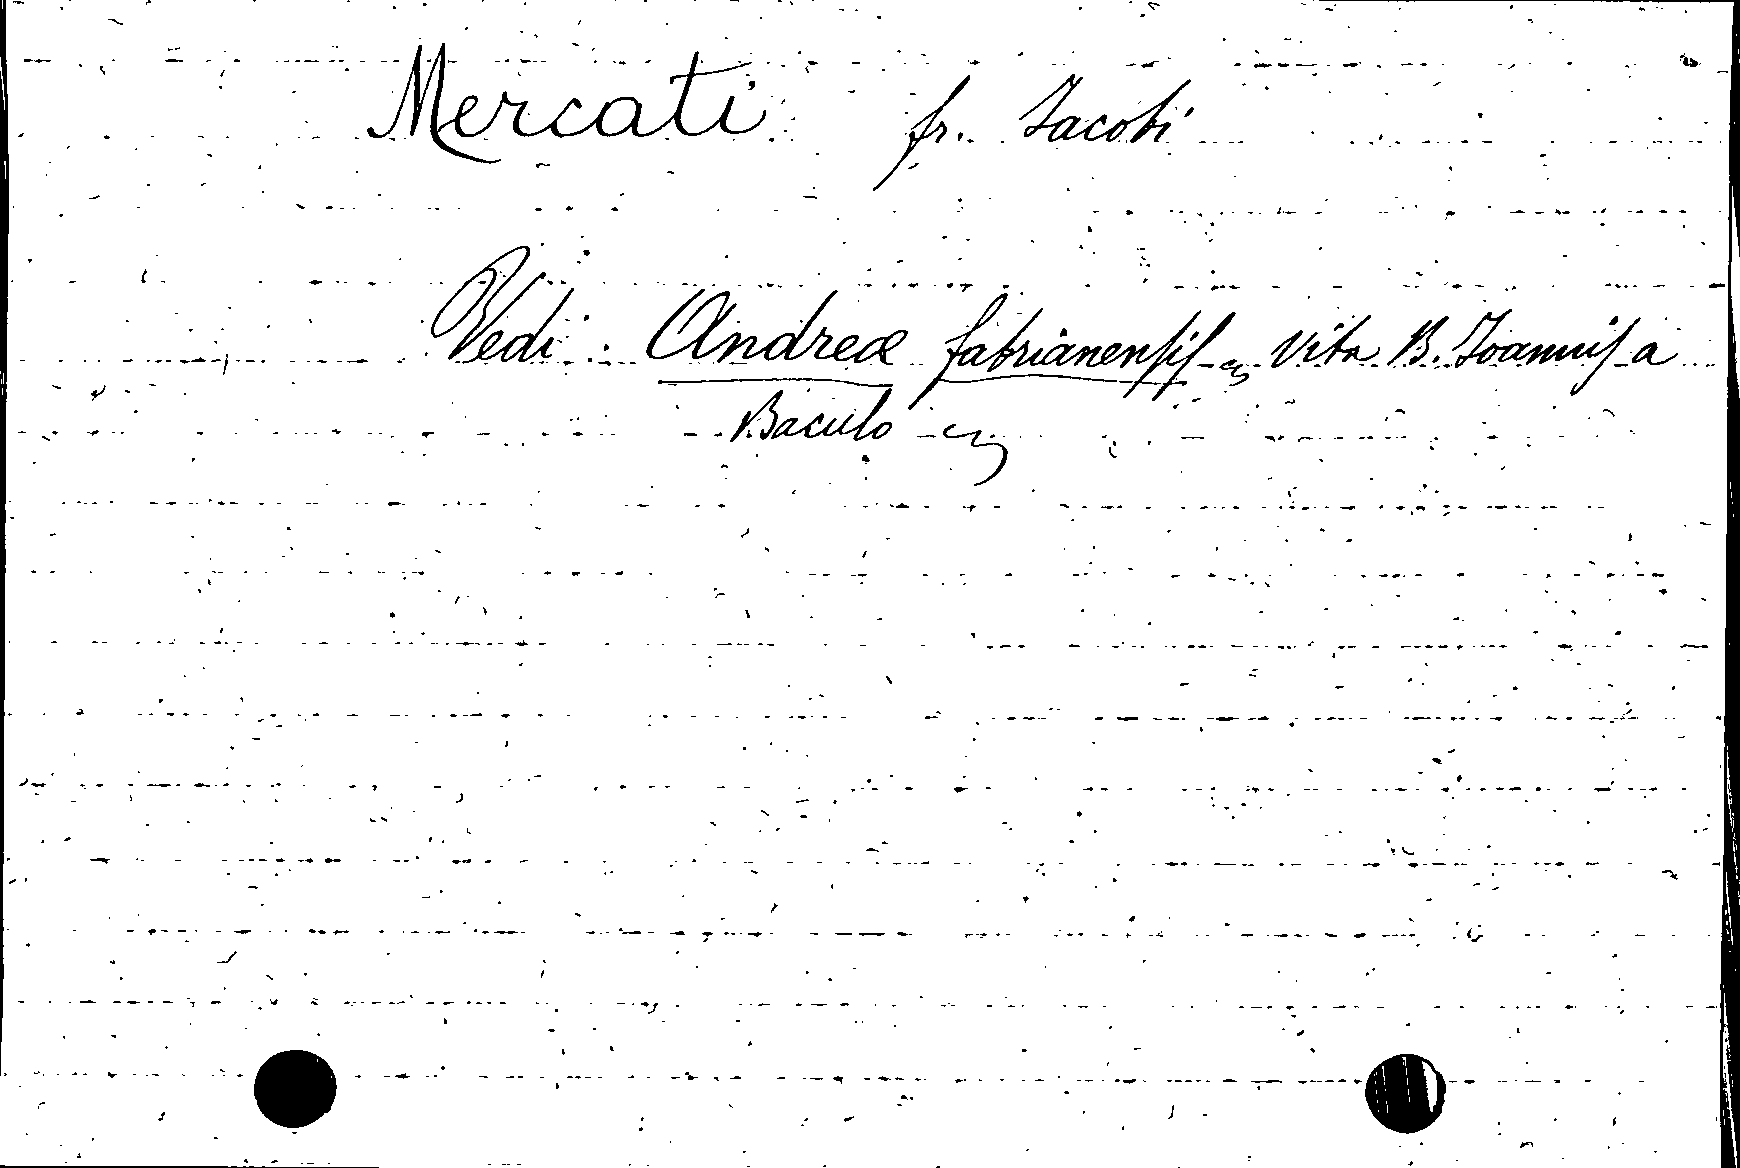 Mercati fr. Jacobi
Vedi: Andreæ fabrianensis - Vita B. Joannis a
Baculo -